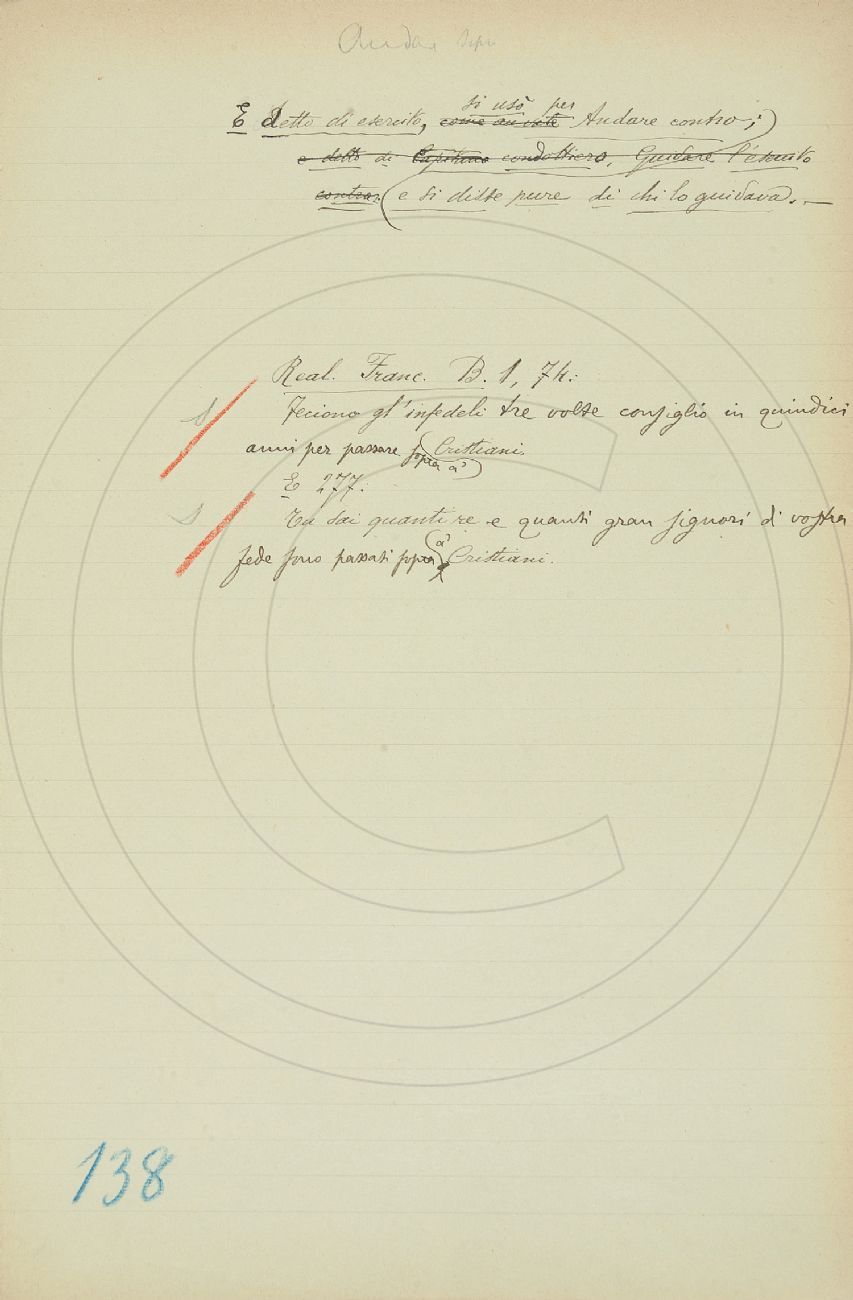 Andar sopr
si usò per
E detto di esercito, come Andare contro;
e detto di Capitano condottiero, Guidare l'esercito
contro. e si disse pure di chi lo guidava. —
Real. Franc. B. 1, 74:
Feciono gl'infedeli tre volte consiglio in quindici
anni per passare sopra a' Cristiani.
E 277:
Tu sai quanti re e quanti gran signori di vostra
fede sono passati sopra a' Cristiani.
138